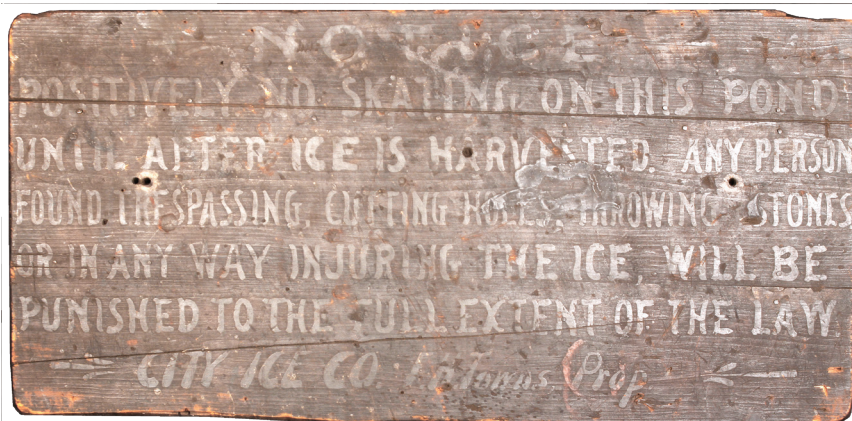 NOTICE
POSITIVELY NO SKATING ON THIS POND
UNTIL AFTER ICE IS HARVESTED. ANY PERSON
FOUND TRESPASSING, CUTTING HOLES, THROWING STONES,
OR IN ANY WAY INJURING THE ICE, WILL BE
PUNISHED TO THE FULL EXTENT OF THE LAW.
CITY ICE CO. Towns. Prop